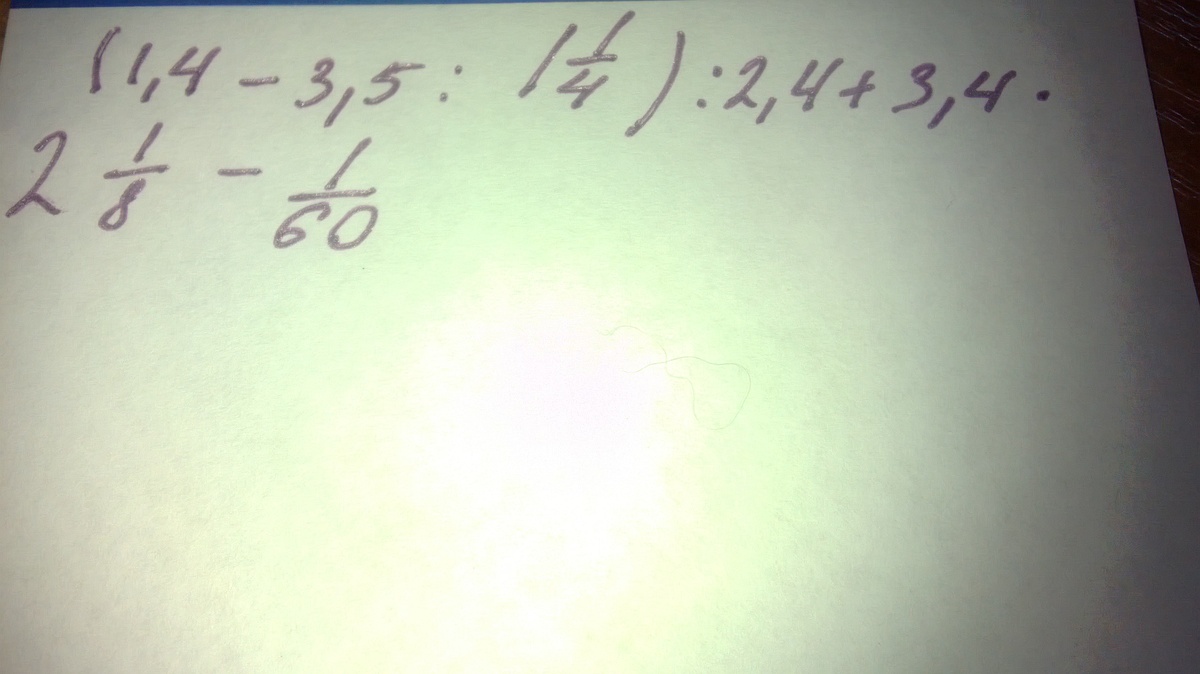 (1,4 - 3,5 : 1 1/4) : 2,4 + 3,4 ·
2 1/8 - 1/60